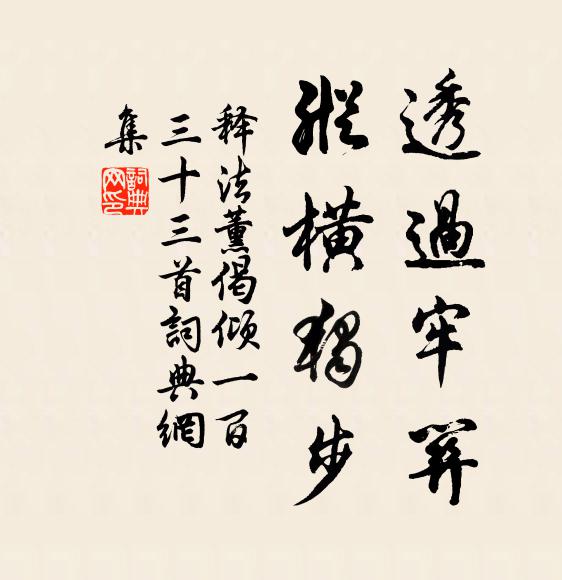 透過牢關
縱橫獨步
释法薰偈倾一百
三十三首詞典網
集
詞典网印